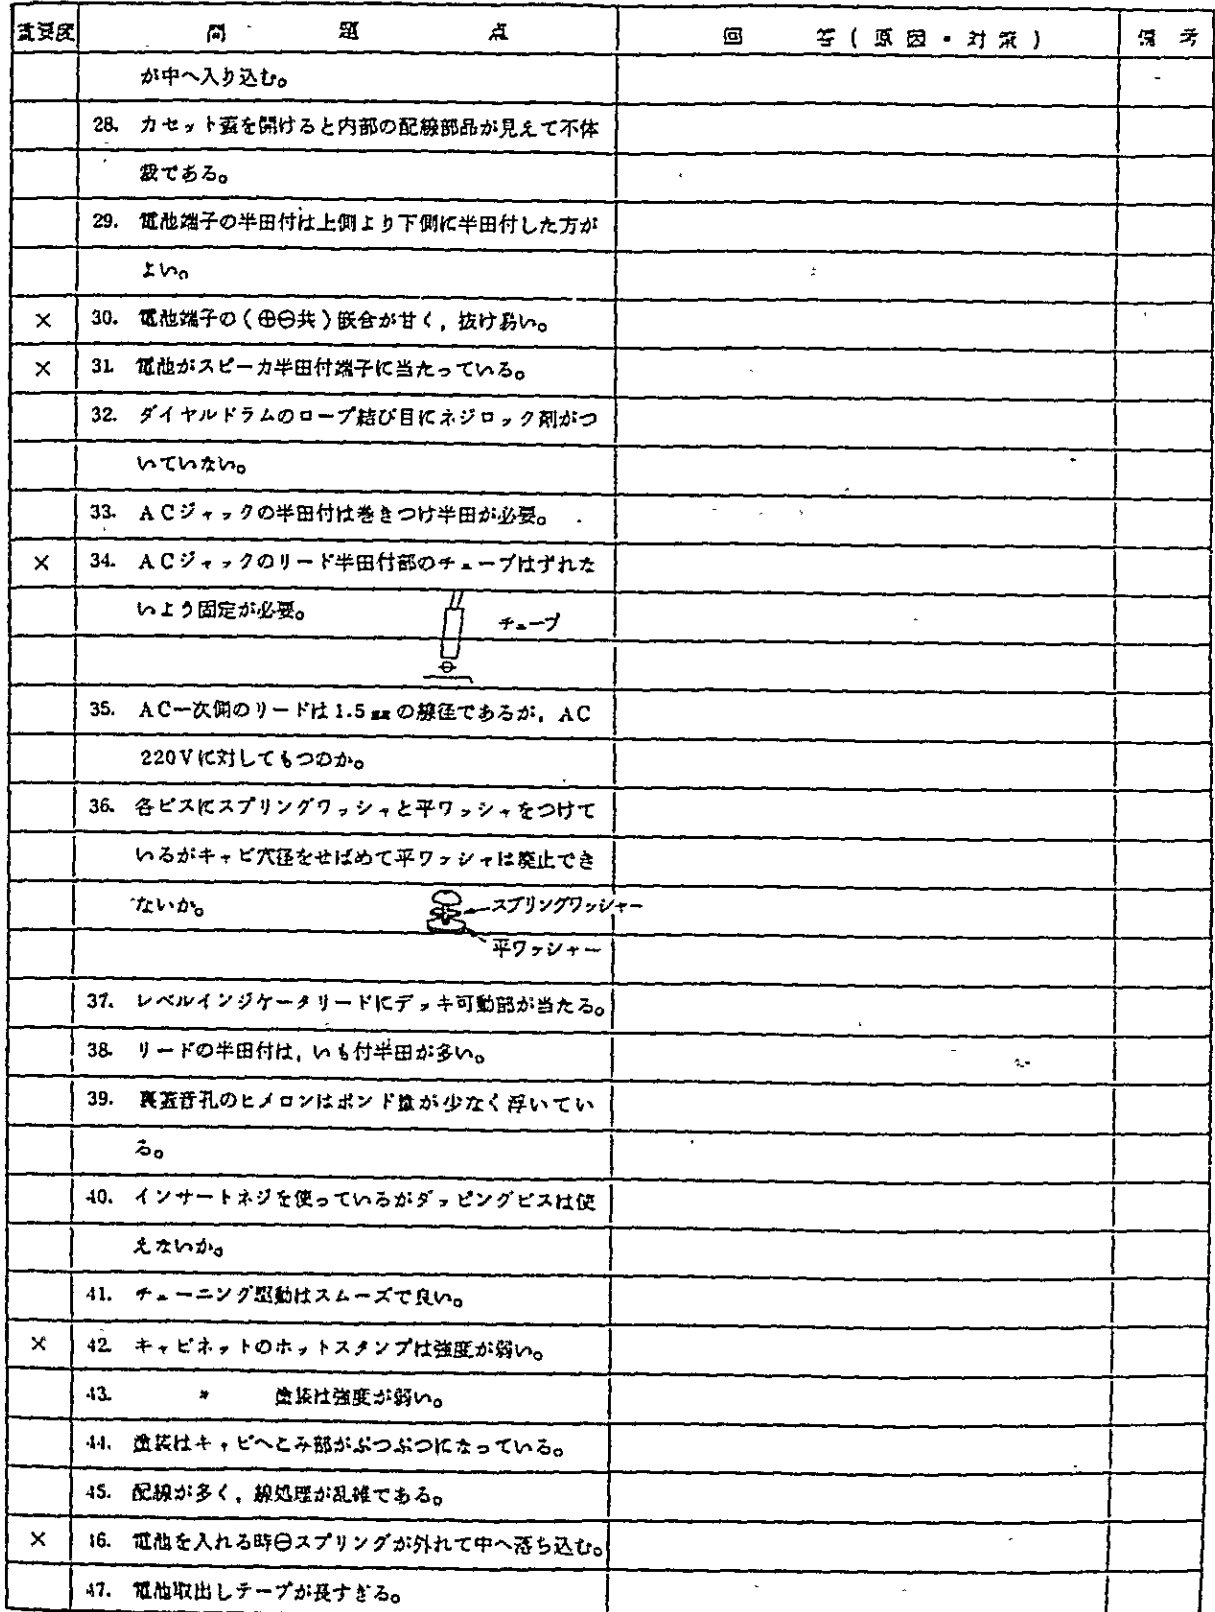 重要度 問 題 点 回 答 ( 原 因 ・ 対 策 ) 備 考
が中へ入り込む。
28. カセット蓋を開けると内部の配線部品が見えて不体
裁である。
29. 電池端子の半田付は上側より下側に半田付した方が
よい。
× 30. 電池端子の(⊕⊖共)嵌合が甘く，抜け易い。
× 31. 電池がスピーカ半田付端子に当たっている。
32. ダイヤルドラムのロープ結び目にネジロック剤がつ
いていない。
33. ACジャックの半田付は巻きつけ半田が必要。
× 34. ACジャックのリード半田付部のチューブはずれた
いよう固定が必要。
チューブ
35. AC一次側のリードは1.5㎜の線径であるが，AC
220Vに対してもつのか。
36. 各ビスにスプリングワッシャと平ワッシャをつけて
いるがキャビ穴径をせばめて平ワッシャは廃止でき
ないか。
スプリングワッシャー
平ワッシャー
37. レベルインジケータリードにデッキ可動部が当たる。
38. リードの半田付は，いも付半田が多い。
39. 裏蓋音孔のヒメロンはボンド量が少なく浮いてい
る。
40. インサートネジを使っているがダッピングビスは使
えないか。
41. チューニング駆動はスムーズで良い。
× 42. キャビネットのホットスタンプは強度が弱い。
43. 〃 塗装は強度が弱い。
44. 塗装はキャビへとみ部がぶつぶつになっている。
45. 配線が多く，線処理が乱雑である。
× 46. 電池を入れる時⊖スプリングが外れて中へ落ち込む。
47. 電池取出しテープが長すぎる。